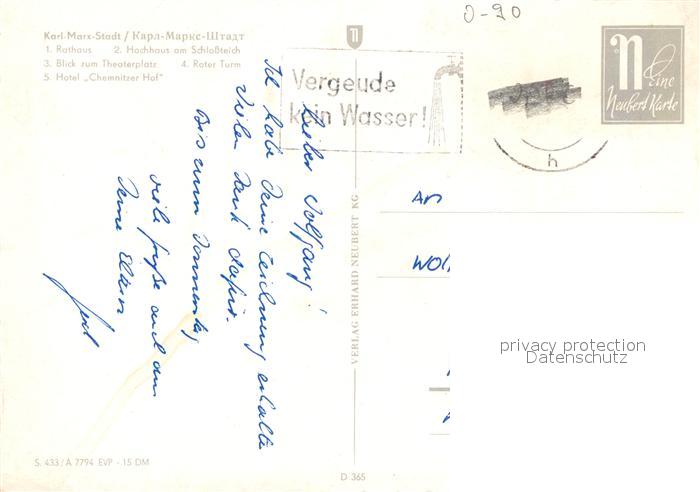 Karl-Marx-Stadt / Карл-Маркс-Штадт
1. Rathaus 2. Hochhaus am Schloßteich
3. Blick zum Theaterplatz 4. Roter Turm
5. Hotel „Chemnitzer Hof"
J-90
Vergeude
kein Wasser!
h
n Eine
Neubert Karte
Lieber Wolfgang!
Ich habe Deine Zeichnung erhalten
Vielen Dank dafür.
Bis zum Donnerstag
viele Grüße auch an
Deine Eltern
Gerd
VERLAG ERHARD NEUBERT KG
An
Wol
privacy protection
Datenschutz
S. 433/A 7794 EVP -.15 DM
D 365